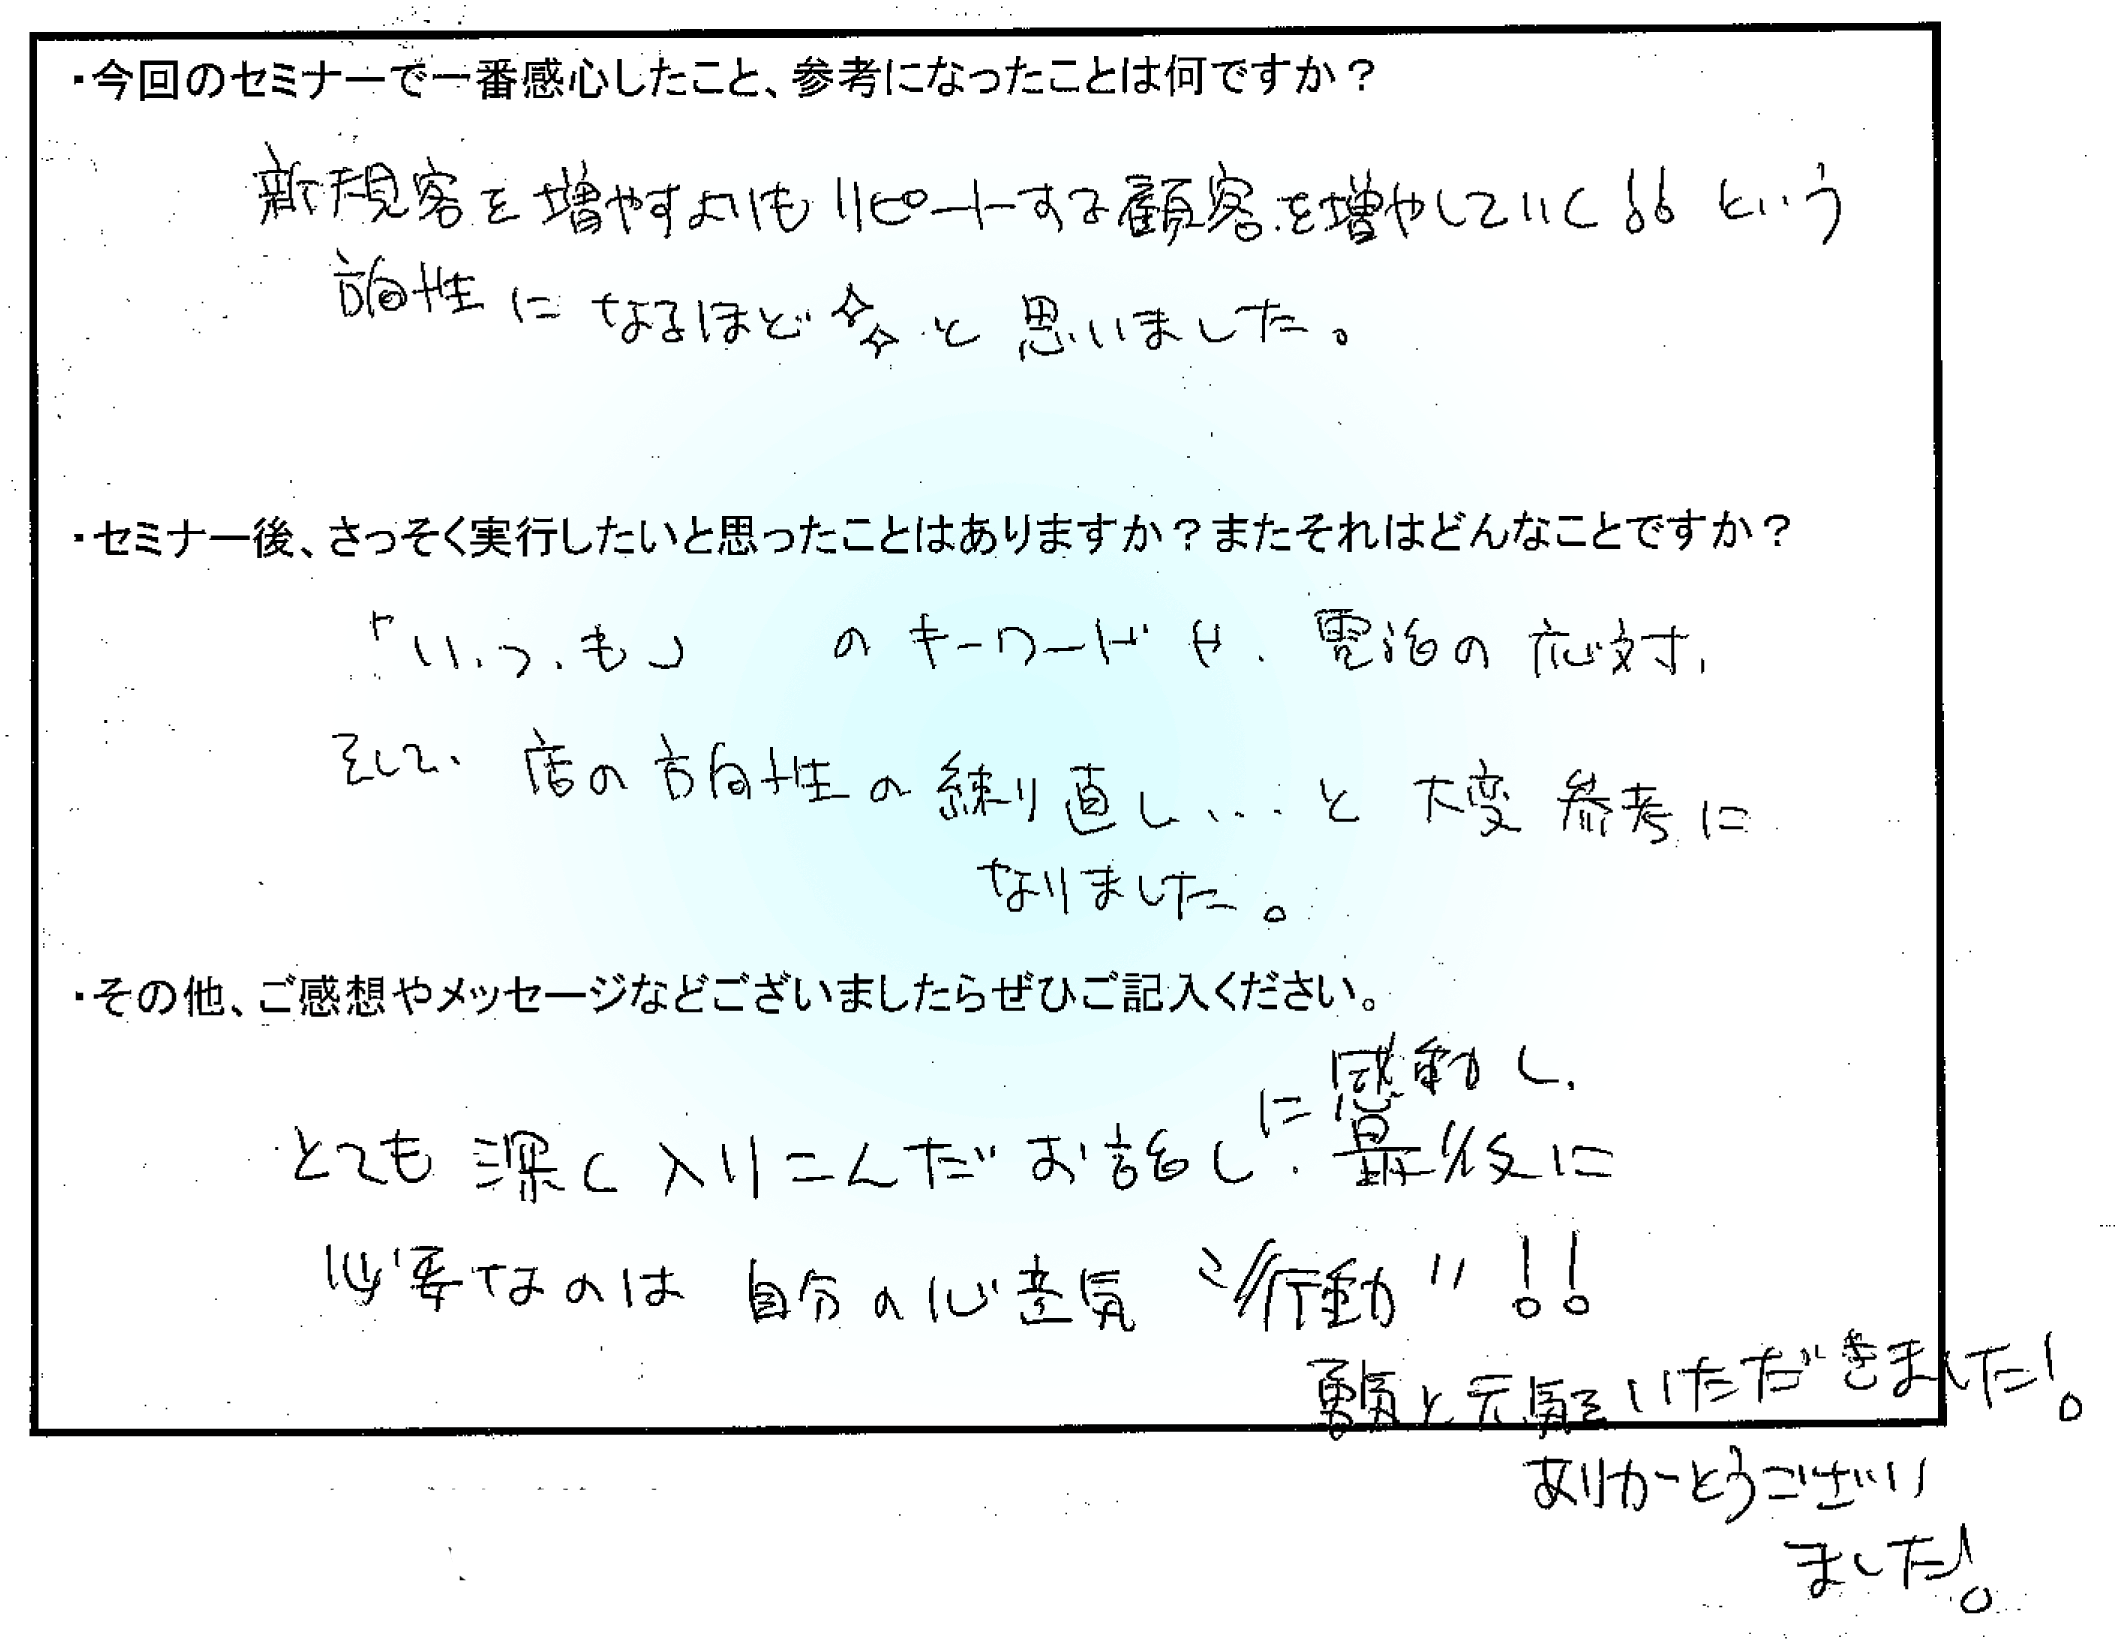 ・今回のセミナーで一番感心したこと、参考になったことは何ですか？
新規客を増やすよりもリピートする顧客を増やしていく!! という
方向性に なるほど✧✧と 思いました。
・セミナー後、さっそく実行したいと思ったことはありますか？またそれはどんなことですか？
「い、つ、も」 のキーワードや、電話の応対、
そして、店の方向性の練り直し…と 大変 参考に
なりました。
・その他、ご感想やメッセージなどございましたらぜひご記入ください。
に感動し、
とても 深く入りこんだお話し、最後に
必要なのは 自分の心意気 〝行動〟!!
勇気と元気をいただきました!
ありがとうござい
ました!